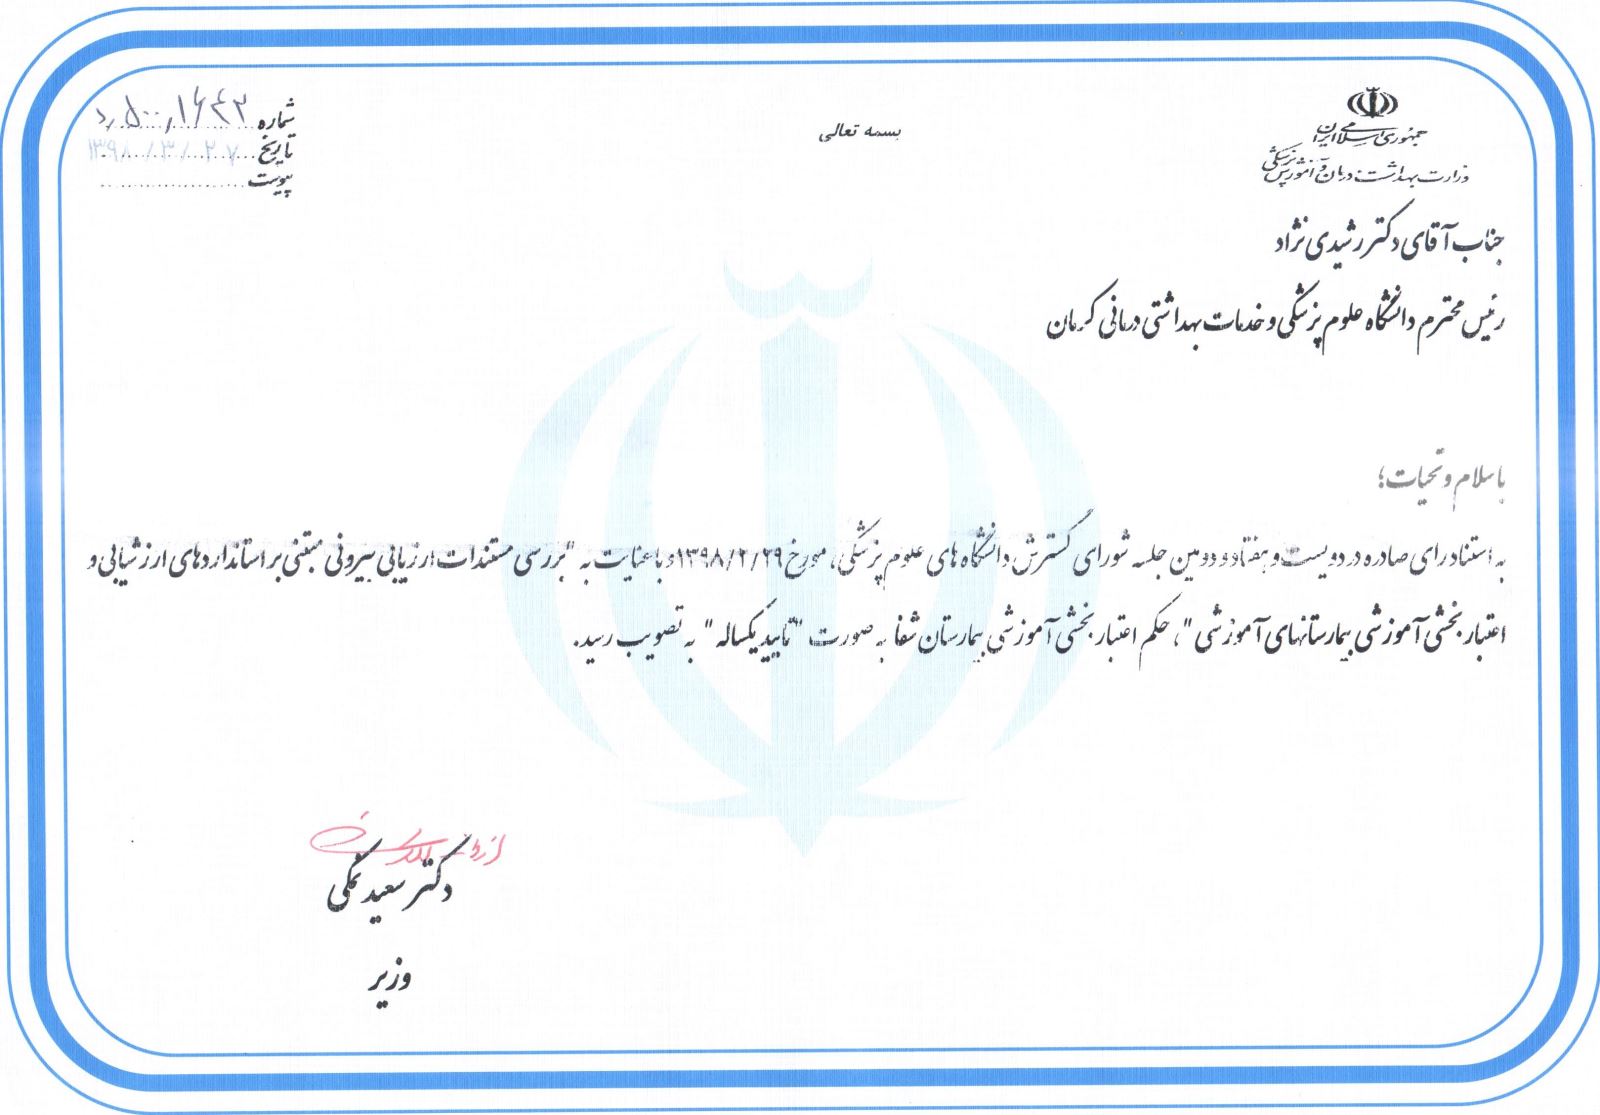 بسمه تعالی
جمهوری اسلامی ایران
وزارت بهداشت درمان و آموزش پزشکی
شماره
تاریخ ۱۳۹۸/۳/۲۷
پیوست
جناب آقای دکتر رشیدی نژاد
رئیس محترم دانشگاه علوم پزشکی و خدمات بهداشتی درمانی کرمان
با سلام و تحیات؛
به استناد رای صادره در دویست و هفتاد و دومین جلسه شورای گسترش دانشگاه های علوم پزشکی، مورخ ۱۳۹۸/۲/۲۹ و با عنایت به "بررسی مستندات ارزیابی بیرونی مبتنی بر استانداردهای ارزشیابی و
اعتباربخشی آموزشی بیمارستانهای آموزشی"، حکم اعتباربخشی آموزشی بیمارستان شفا به صورت "تایید یکساله" به تصویب رسید.
دکتر سعید نمکی
وزیر